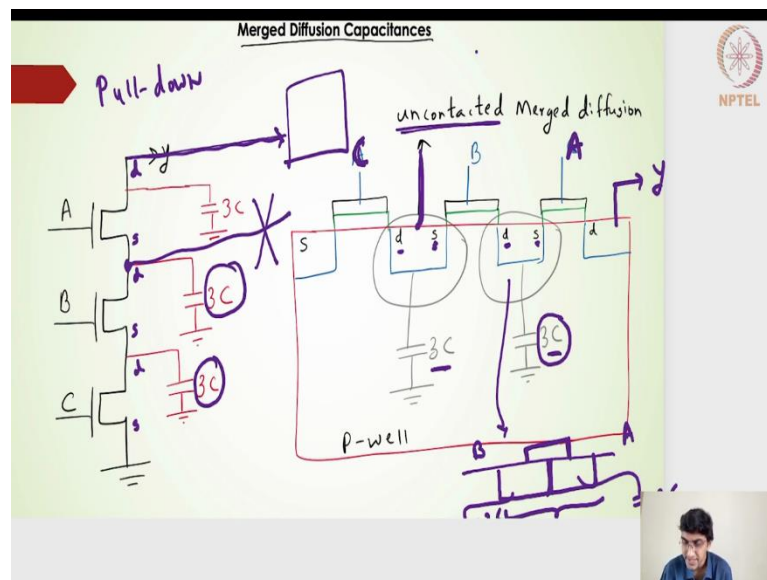 Merged Diffusion Capacitances
NPTEL
Pull-down
uncontacted Merged diffusion
d
y
C
B
A
y
A
3C
s
d
S
d
s
d
s
d
B
3C
s
d
3C
3C
C
3C
s
P-well
B
A